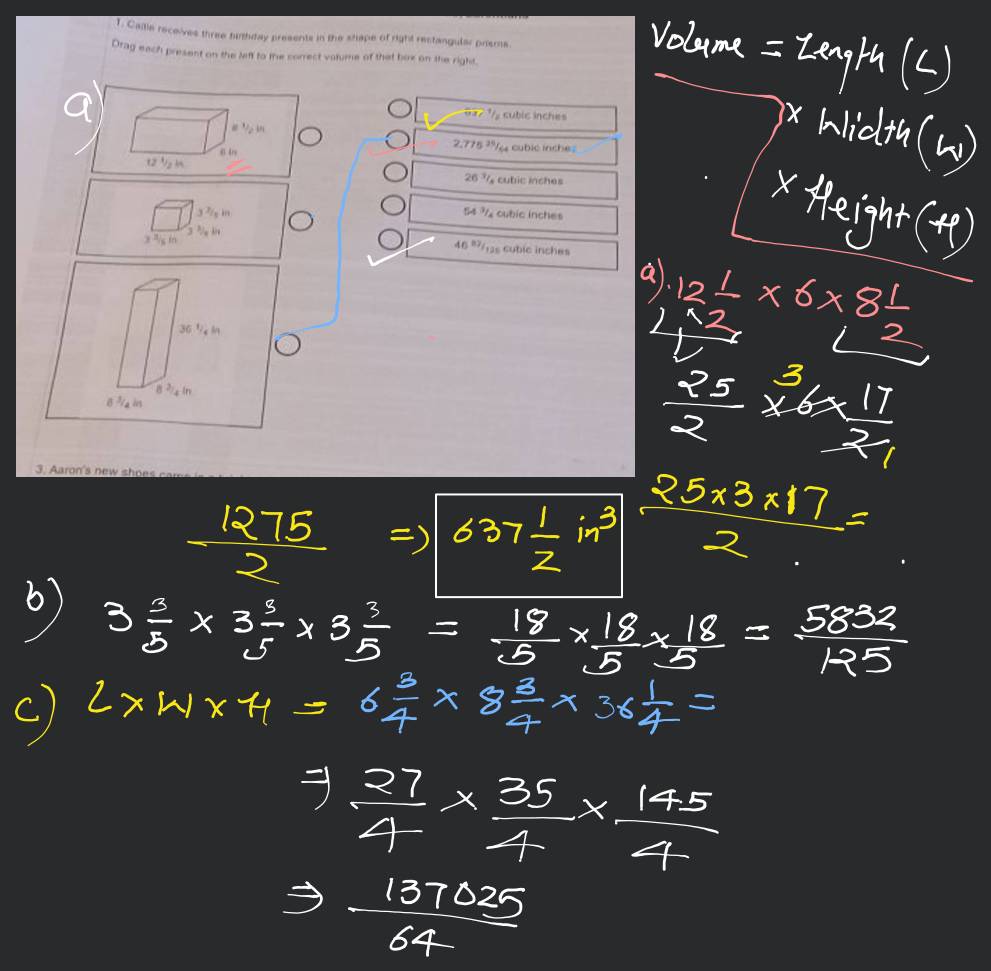 1. Callie receives three birthday presents in the shape of right rectangular prisms.
Drag each present on the left to the correct volume of that box on the right.
a)
8 1/2 in.
6 in
12 1/2 in.
3 3/5 in
3 3/5 in
3 3/5 in.
36 1/4 in
8 3/4 in
8 3/4 in
637 1/2 cubic inches
2,775 25/64 cubic inches
26 3/4 cubic inches
54 3/4 cubic inches
46 82/125 cubic inches
3. Aaron's new shoes came in a
Volume = Length (L)
× Width (W)
× Height (H)
a). 12 1/2 × 6 × 8 1/2
25/2 × 6 × 17/2
3
1
25×3×17/2 =
1275/2 => 637 1/2 in³
b) 3 3/5 × 3 3/5 × 3 3/5 = 18/5 × 18/5 × 18/5 = 5832/125
c) L × W × H = 6 3/4 × 8 3/4 × 36 1/4 =
=> 27/4 × 35/4 × 145/4
=> 137025/64